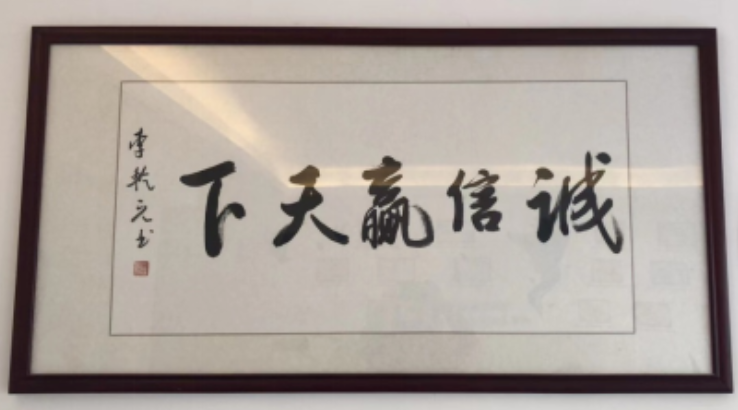 诚信赢天下
李乾元书